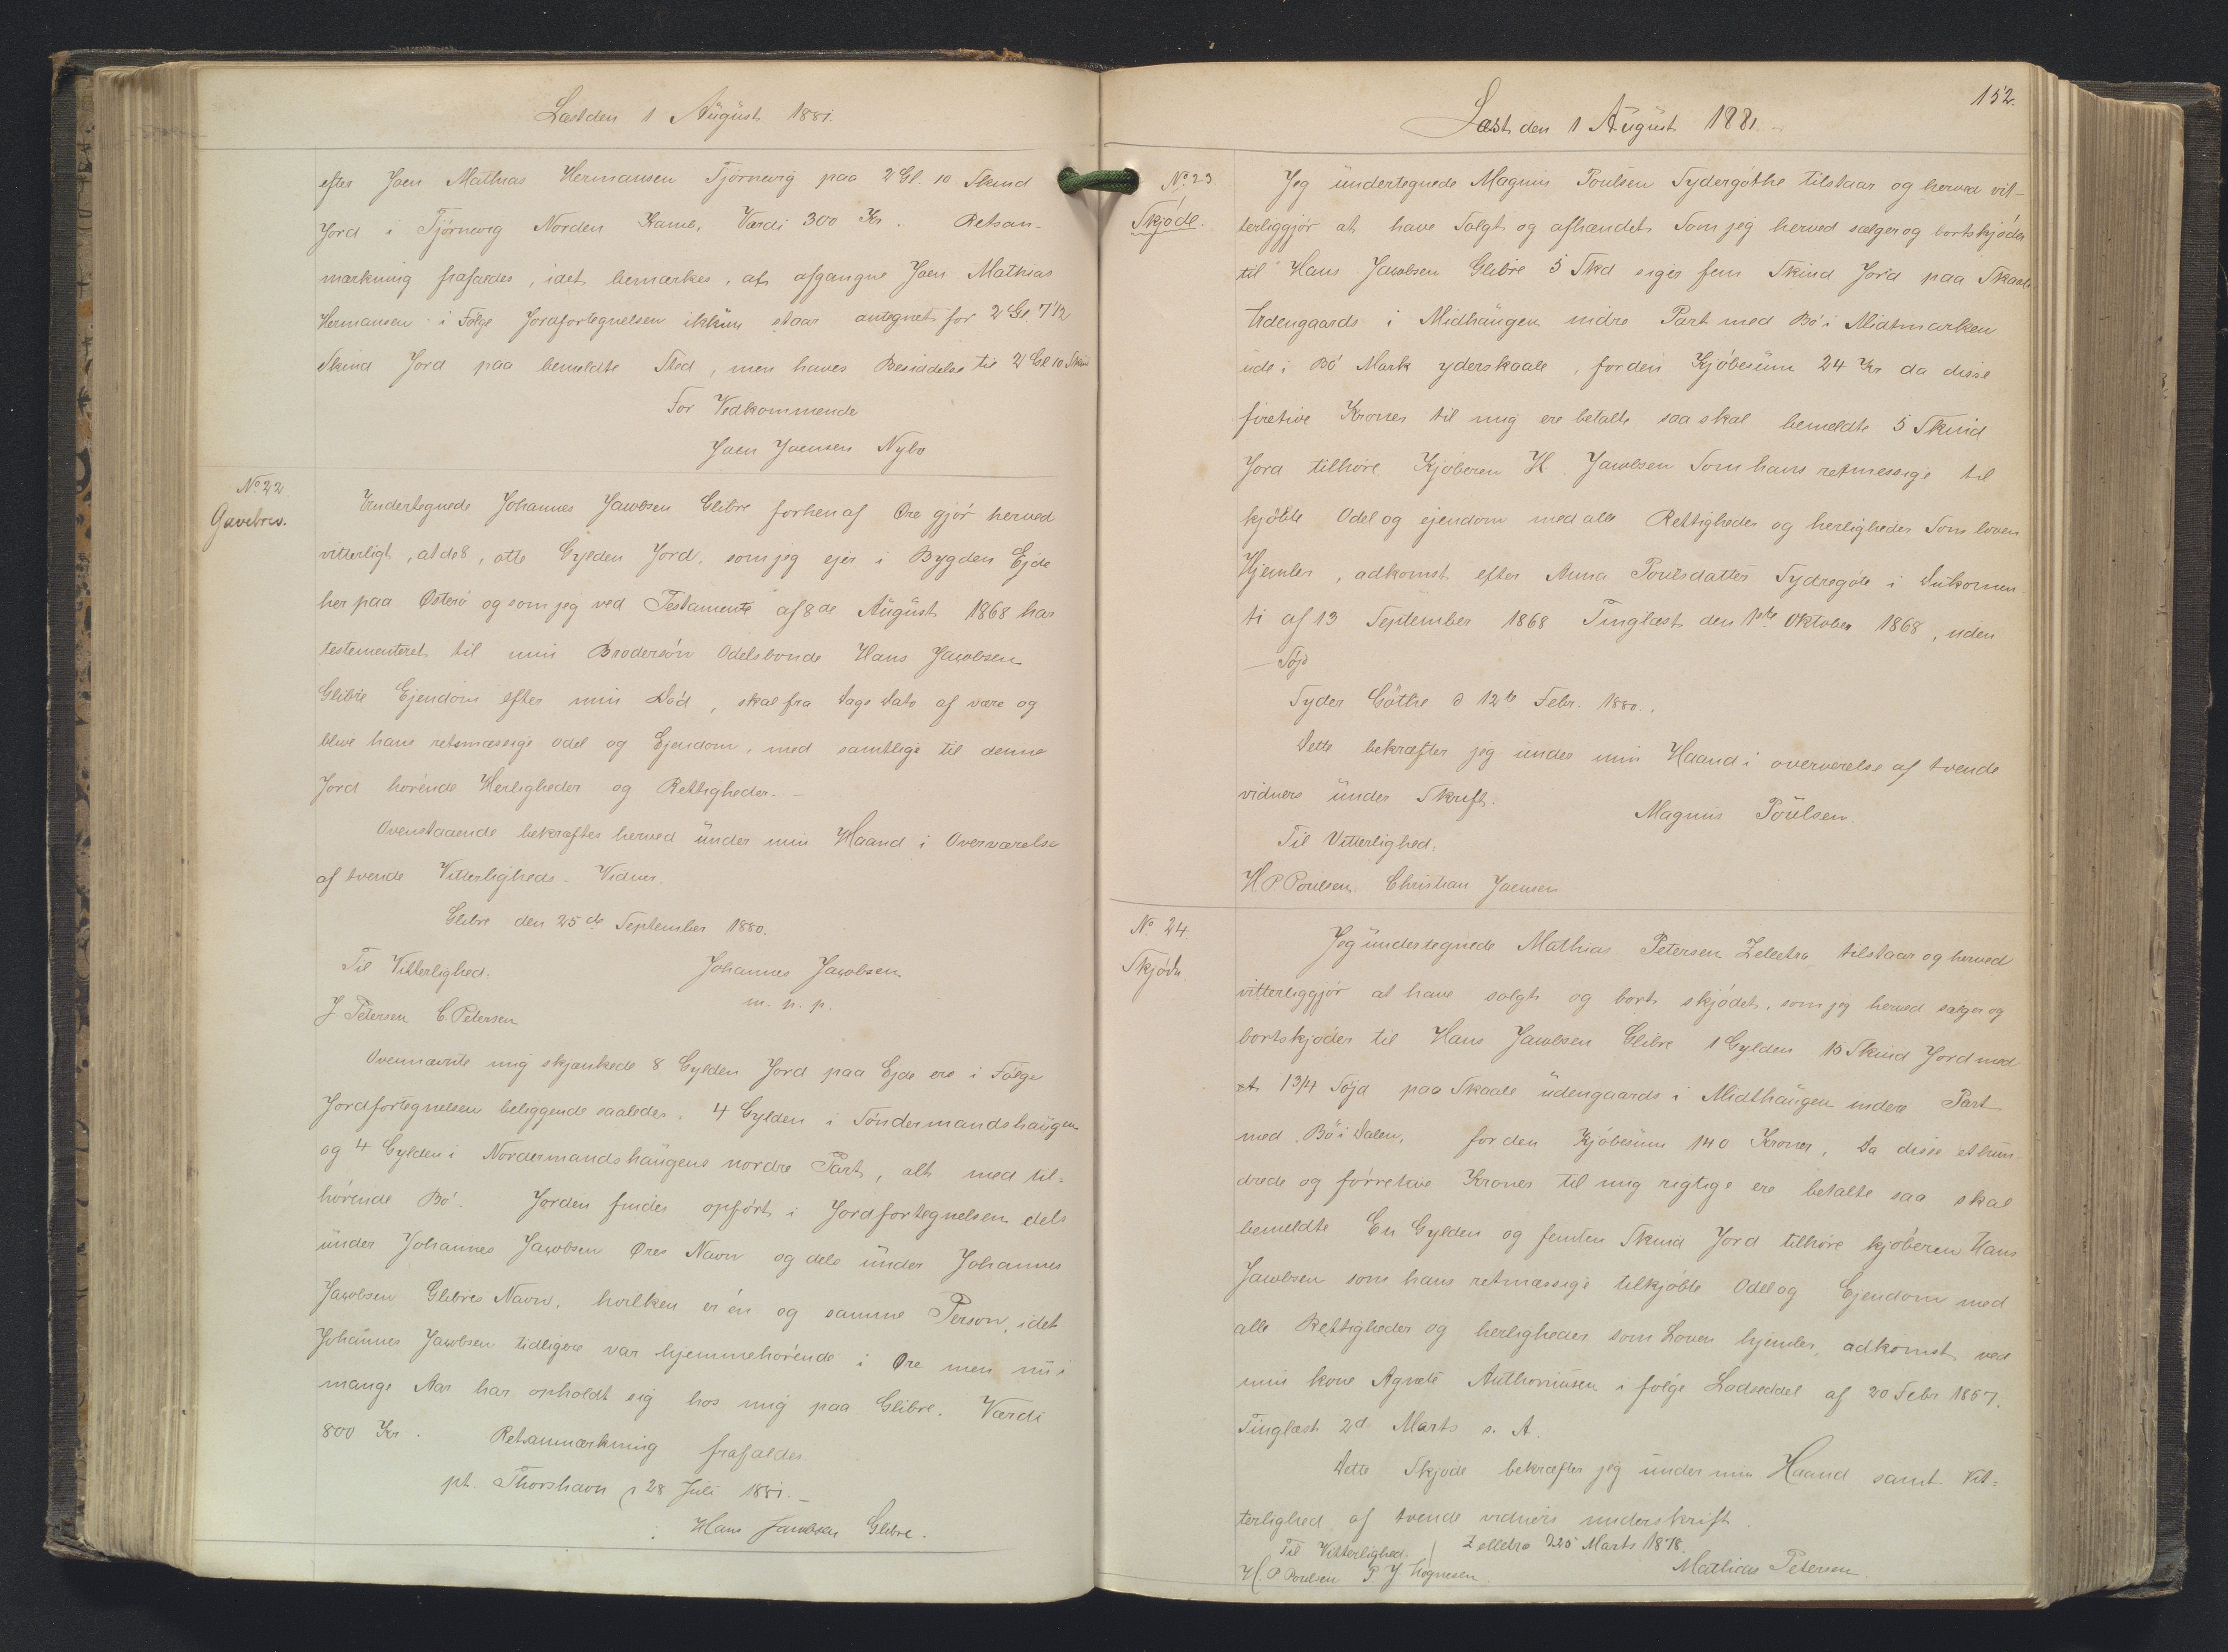 Læst den 1 August 1881.
efter Joen Mathias Hermansen Tjörnevig paa 2 Gl. 10 Skind
Jord i Tjörnevig Norden Kamb, Værdi 300 Kr. Retsan-
mærkning frafaldes, idet bemærkes, at afgangne Joen Mathias
Hermansen i Fölge Jordfortegnelsen ikkun staar antegnet for 2 Gl. 7 1/2
Skind Jord paa bemeldte Sted, men haves Besiddelse til 2 Gl 10 Skind
For Vedkommende
Joen Joensen Nybo
No 22
Gavebrev.
Undertegnede Johannes Jacobsen Glibre forhen af Øre gjör herved
vitterligt, at de 8, otte Gylden Jord, som jeg ejer i Bygden Ejde
her paa Østerö og som jeg ved Testamente af 8de August 1868 har
testementeret til min Brodersön Odelsbonde Hans Jacobsen
Glibre Ejendom efter min Död, skal fra Dags Dato af være og
blive hans retsmæssige Odel og Ejendom, med samtlige til denne
Jord hörende Herligheder og Rettigheder. —
Ovenstaaende bekræftes herved under min Haand i Overværelse
af tvende Vitterligheds-Vidner.
Glibre den 25de September 1880.
Til Vitterlighed: Johannes Jacobsen
J. Petersen C. Petersen m. p. p.
Ovennævnte mig skjænkede 8 Gylden Jord paa Ejde ere i Fölge
Jordfortegnelsen beliggende saaledes. 4 Gylden i Söndermandshaugen
og 4 Gylden i Nordermandshaugens nordre Part, alt med til=
hörende Bö. Jorden findes opfört i Jordfortegnelsen dels
under Johannes Jacobsen Øres Navn og dels under Johannes
Jacobsen Glibres Navn, hvilken er én og samme Person, idet
Johannes Jacobsen tidligere var hjemmehörende i Øre men nu i
mange Aar har opholdt sig hos mig paa Glibre. Værdi
800 Kr. Retsanmærkning frafaldes
pt. Thorshavn 28 Juli 1881. —
Hans Jacobsen Glibre.
152.
Læst den 1 August 1881. —
No 23
Skjöde.
Jeg undertegnede Magnus Poulsen Sydergöthe tilstaar og herved vit-
terliggjör at have Solgt og afhændet Som jeg herved sælger og bortskjöder
til Hans Jacobsen Glibre 5 Skd siger fem Skind Jord paa Skaale
Udengaards i Midhaugen indre Part med Bö i Midtmarken
ude i Bö Mark yderskaale, for den Kjöbesum 24 Kr da disse
firetive Kroner til mig ere betalte saa skal bemeldte 5 Skind
Jord tilhöre Kjöberen H. Jacobsen Som hans retmessige til
kjöbte Odel og ejendom med alle Rettigheder og herligheder Som loven
Hjemler, adkomst efter Anna Poulsdatter Sydregöte i Dukomen-
ti af 13 September 1868 Tinglæst den 1ste Oktober 1868, uden
— Söjd
Syder Göthe d 12te Febr. 1880.
Dette bekræfter jeg under min Haand i oververelse af tvende
vidners under Skrift.
Magnus Poulsen.
Til Vitterlighed:
H. P. Poulsen. Christian Joensen
No 24
Skjöde
Jeg undertegnede Mathias Petersen Zeletra tilstaar og herved
vitterliggjör at have solgt og bort skjödet, som jeg herved sælger og
bortskjöder til Hans Jacobsen Glibre 1 Gylden 15 Skind Jord med
et 13/4 Söjd paa Skaale udengaards i Midthaugen indere Part
med Bö i Dalen, for den Kjöbesum 140 Kroner, Da disse ethun-
drede og förretive Kroner til mig rigtige ere betalte saa skal
bemeldte En Gylden og femten Skind Jord tilhöre kjöberen Hans
Jacobsen som hans retmæssige tilkjöbte Odel og Ejendom med
alle Rettigheder og herligheder som Loven hjemler, adkomst ved
min kone Agnete Anthoniusen i fölge Ladseddel af 20 Febr 1857.
Tinglæst 2d Marts s. A.
Dette Skjöde bekræfter jeg under min Haand samt Vit=
terlighed af tvende vidners underskrift.
Til Vitterlighed: Zelletra d 25 Marts 1878.
H. P. Poulsen P. J. Hognesen Mathias Petersen